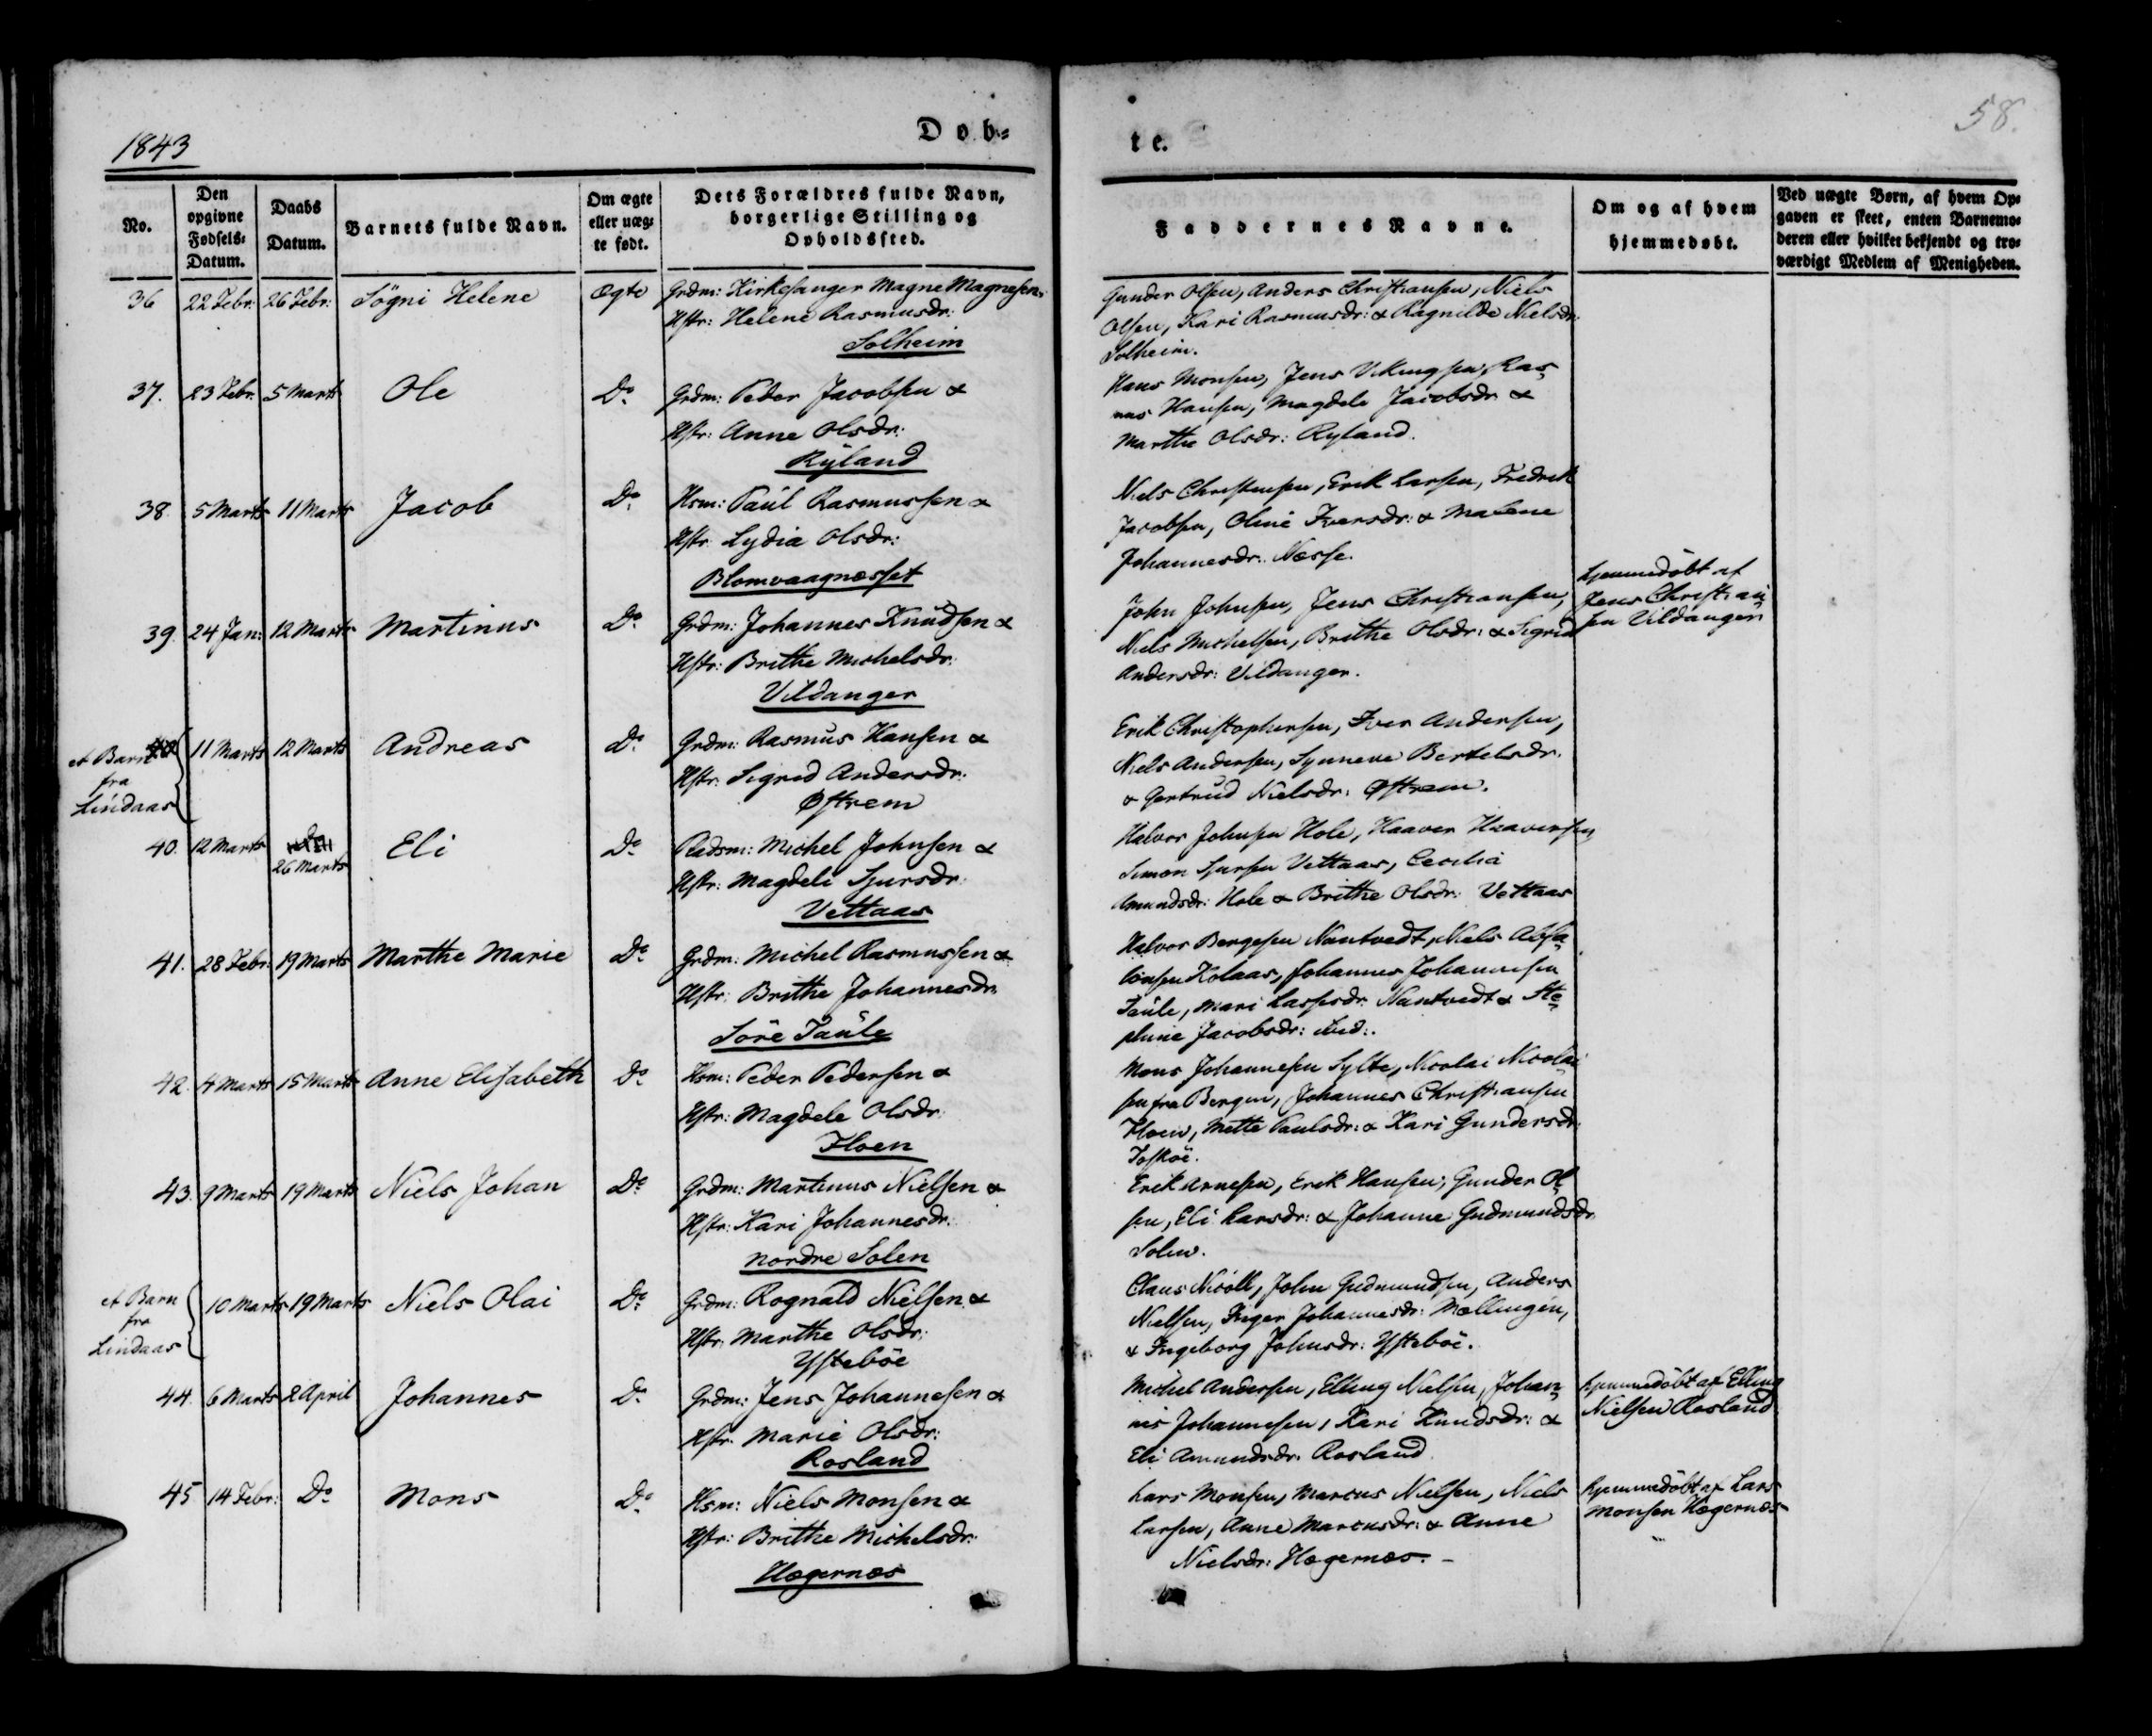 1843
Døb-
te.
58.
No.
Den opgivne Fødsels-Datum.
Daabs Datum.
Barnets fulde Navn.
Om ægte eller uæg-te født.
Dets Forældres fulde Navn, borgerlige Stilling og Opholdssted.
Faddernes Navne.
Om og af hvem hjemmedøbt.
Ved uægte Børn, af hvem Op-gaven er skeet, enten Barnemo-deren eller hvilket bekjendt og tro-værdigt Medlem af Menigheden.
36 22 Febr: 26 Febr: Søgni Helene Ægte Grdm: Kirkesanger Magne Magnesen
Hstr: Helene Rasmusdr:
Solheim
Gunder Olsen, Anders Christiansen, Niels
Olsen, Kari Rasmusdr: & Ragnilde Nielsdr:
Solheim.
37. 23 Febr. 5 Marts Ole Do Grdm: Peder Jacobsen &
Hstr: Anne Olsdr:
Ryland
Hans Monsen, Jens Vikingsen, Ras
mus Hansen, Magdele Jacobsdr &
Marthe Olsdr: Ryland.
38. 5 Marts 11 Marts Jacob Do Hsm: Paul Rasmussen &
Hstr Lydia Olsdr:
Blomvaagnæsset
Niels Christensen, Erik Larsen, Fredrik
Jacobsen, Oline Iversdr: & Malene
Johannesdr: Næsse.
39. 24 Jan: 12 Marts Martinus Do Grdm: Johannes Knudsen &
Hstr: Brithe Michelsdr.
Vildanger
John Johnsen, Jens Christiansen,
Niels Michelsen, Brithe Olsdr: & Sigrid
Andersdr: Vildanger.
hjemmedøbt af
Jens Christian
sen Vildanger
et Barn
fra
Lindaas
11 Marts 12 Marts Andreas Do Grdm: Rasmus Hansen &
Hstr: Sigrid Andersdr:
Østrem
Erik Christophersen, Iver Andersen,
Niels Andersen, Synneve Bertelsdr.
& Gertrud Nielsdr: Østrem.
40. 12 Marts 26 Marts Eli Do Pladsm: Michel Johnsen &
Hstr: Magdeli Sjursdr
Vettaas
Halvor Johnsen Hole, Haaver Haaversen
Simon Sjursen Vettaas, Cecilia
Amundsdr: Hole & Brithe Olsdr: Vettaas
41. 28 Febr: 19 Marts Marthe Marie Do Grdm: Michel Rasmussen &
Hstr: Brithe Johannesdr.
Söre Taule
Halvor Bergesen Nantvedt, Niels Absa
lonsen Kolaas, Johannes Johannesen
Taule, Mari Lassesdr: Nantvedt & Ste
phine Jacobsdr: ibid:.
42. 4 Marts 15 Marts Anne Elisabeth Do Hsm: Peder Pedersen &
Hstr: Magdele Olsdr
Floen
Mons Johannesen Sylte, Nicolai Nicolai
sen fra Bergen, Johannes Christiansen
Floen, Mette Paulsdr: & Kari Gundersdr:
Toskøe.
43. 9 Marts 19 Marts Niels Johan Do Grdm: Martinus Nielsen &
Hstr: Kari Johannesdr.
Nordre Solen
Erik Arnesen, Erik Hansen, Gunder Ol
sen, Eli Larsdr: & Johanne Gudmundsdr
Solen.
et Barn
fra
Lindaas
10 Marts 19 Marts Niels Olai Do Grdm: Rognald Nielsen &
Hstr: Marthe Olsdr:
Ystebøe
Claus Nicoll, John Gudmundsen, Anders
Nielsen, Inger Johannesdr: Mællingen,
& Ingeborg Johnsdr: Ystebøe.
44. 6 Marts 2 April Johannes Do Grdm: Jens Johannesen &
Hstr. Marie Olsdr:
Rosland
Michel Andersen, Elling Nielsen, Johan
nes Johannesen, Kari Knudsdr: &
Eli Amundsdr. Rosland
hjemmedøbt af Elling
Nielsen Rosland
45 14 Febr: Do Mons Do Hsm: Niels Monsen &
Hstr: Brithe Michelsdr:
Hægernæs
Lars Monsen, Marcus Nielsen, Niels
Larsen, Anne Marcusdr: & Anne
Nielsdr: Hægernæs.
hjemmedøbt af Lars
Monsen Hægernæs